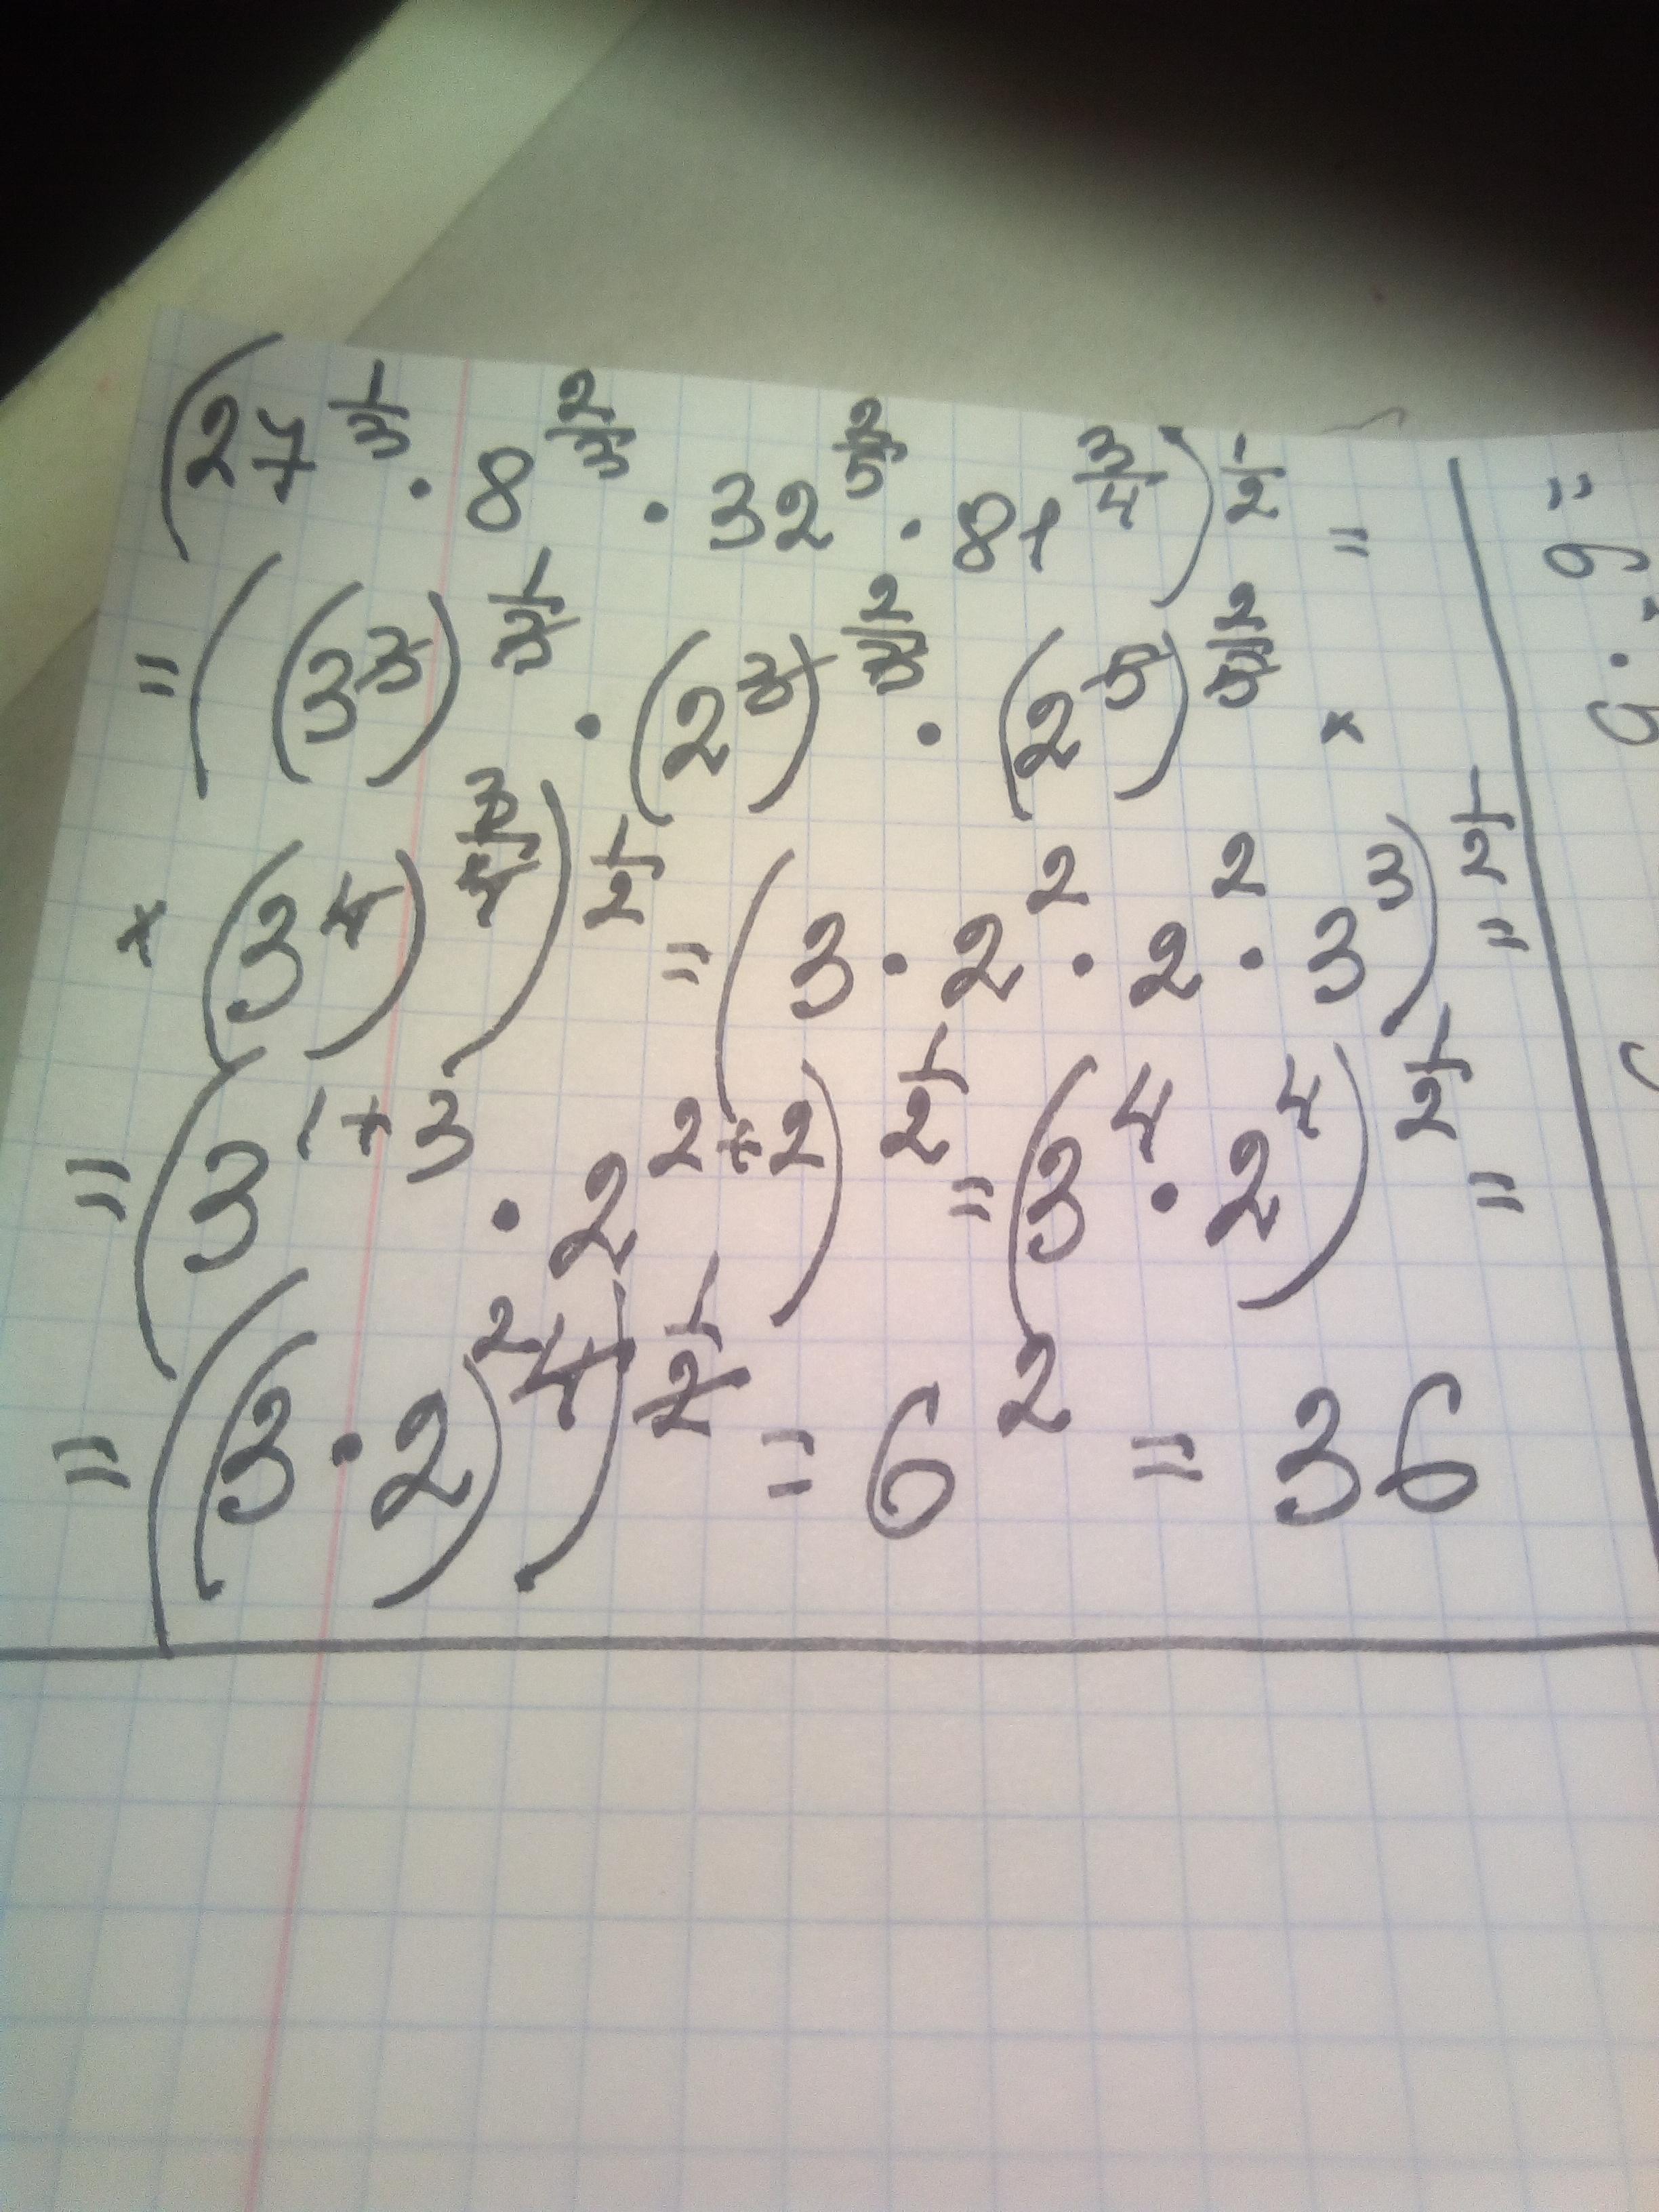 (27^(1/3) · 8^(2/3) · 32^(2/5) · 81^(3/4))^(1/2) =
= ((3^3)^(1/3) · (2^3)^(2/3) · (2^5)^(2/5) ×
× (3^4)^(3/4))^(1/2) = (3 · 2^2 · 2^2 · 3^3)^(1/2) =
= (3^(1+3) · 2^(2+2))^(1/2) = (3^4 · 2^4)^(1/2) =
= ((3 · 2)^(2 4))^(1/2) = 6^2 = 36